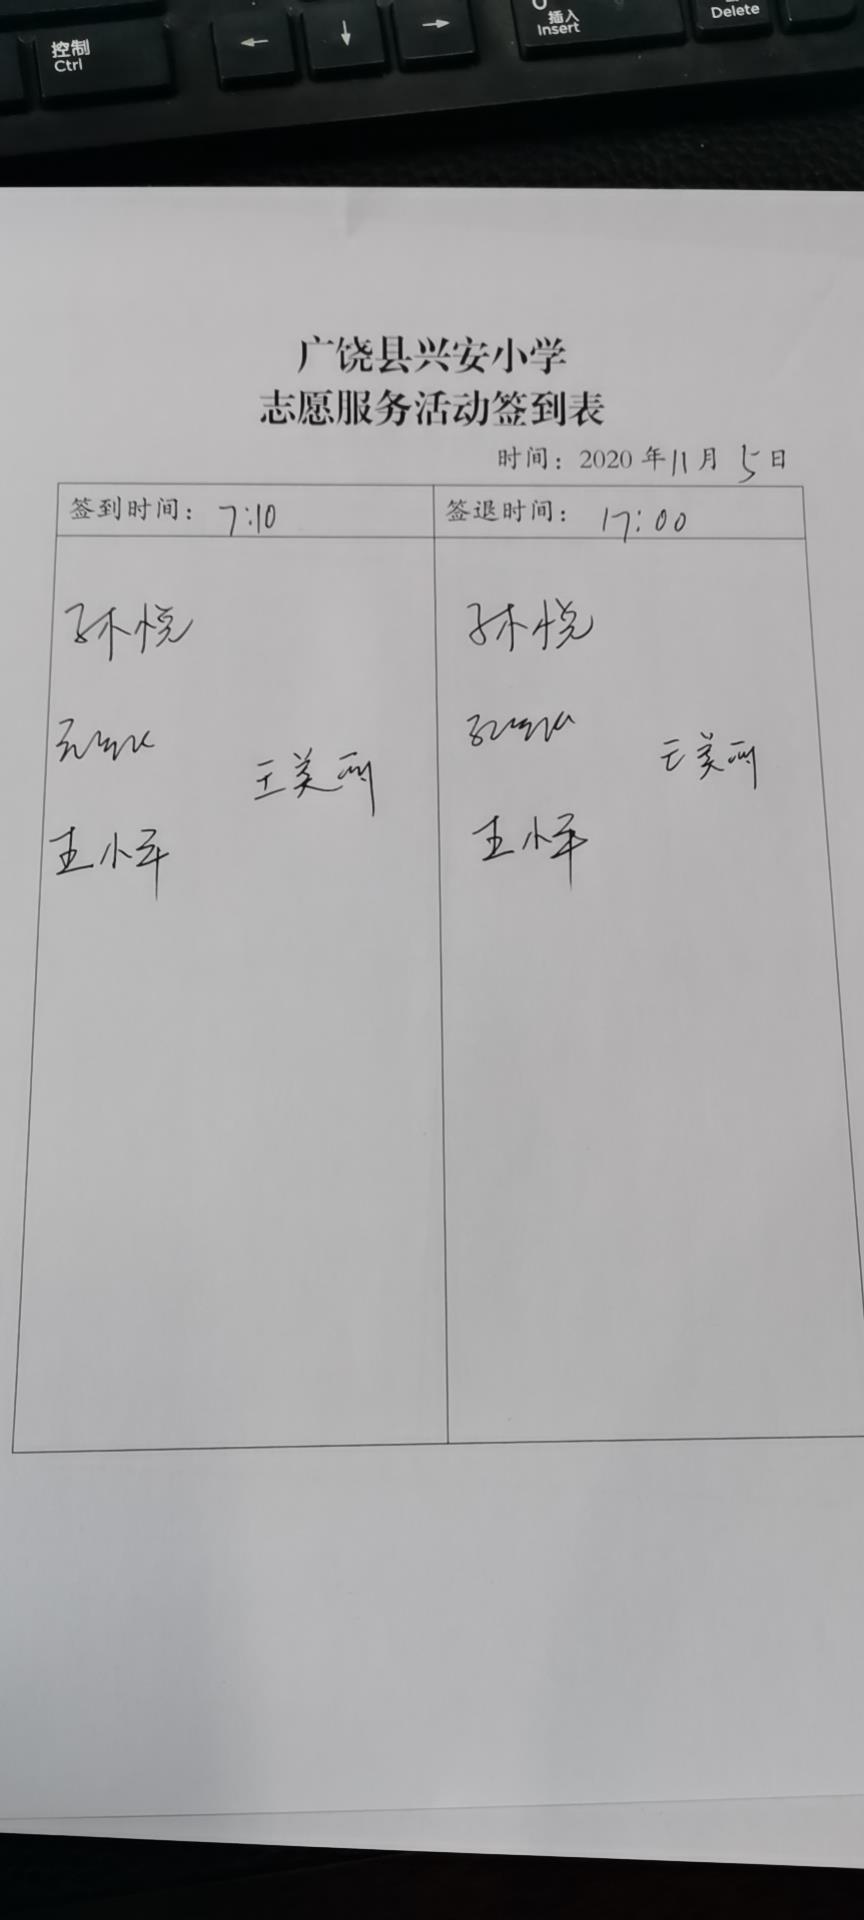 控制
Ctrl
←
↓
→
插入
Insert
Delete
广饶县兴安小学
志愿服务活动签到表
时间：2020年11月5日
签到时间：7:10
签退时间：17:00
孙悦
孙悦
王美丽
王美丽
王小军
王小军